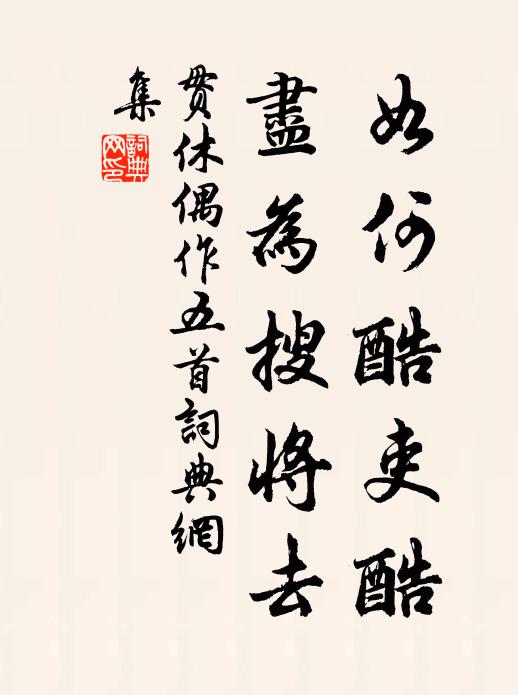 如何酷吏酷
盡為搜將去
貫休偶作五首詞典網
集
詞典網印